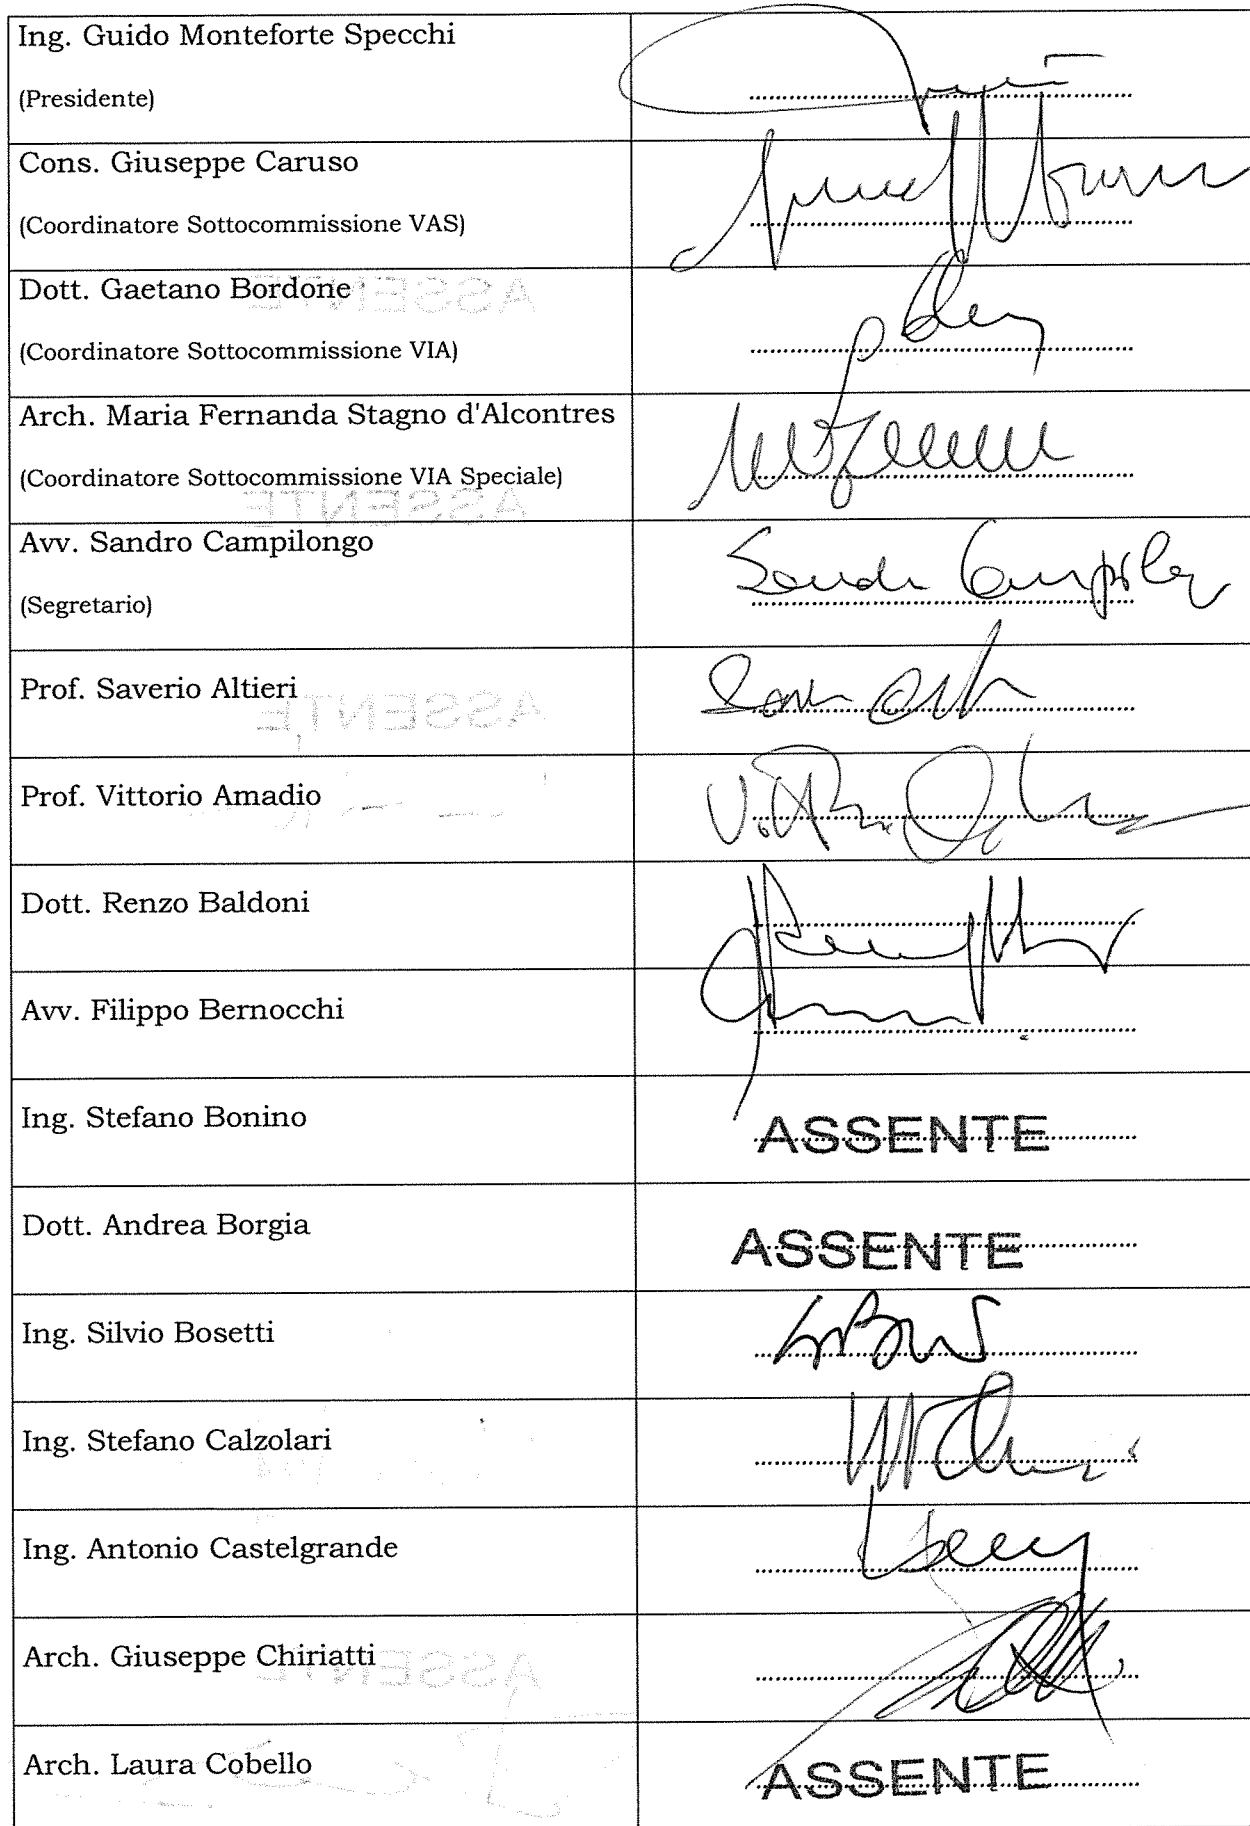 Ing. Guido Monteforte Specchi
(Presidente)
Cons. Giuseppe Caruso
(Coordinatore Sottocommissione VAS)
Dott. Gaetano Bordone
(Coordinatore Sottocommissione VIA)
Arch. Maria Fernanda Stagno d'Alcontres
(Coordinatore Sottocommissione VIA Speciale)
Avv. Sandro Campilongo
(Segretario)
Prof. Saverio Altieri
Prof. Vittorio Amadio
Dott. Renzo Baldoni
Avv. Filippo Bernocchi
Ing. Stefano Bonino
ASSENTE
Dott. Andrea Borgia
ASSENTE
Ing. Silvio Bosetti
Ing. Stefano Calzolari
Ing. Antonio Castelgrande
Arch. Giuseppe Chiriatti
Arch. Laura Cobello
ASSENTE